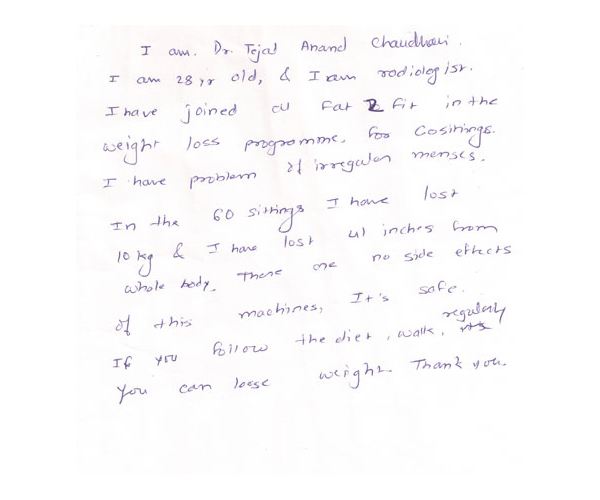 I am. Dr. Tejal Anand Chaudhari.
I am 28 yr old, & I am radiologist.
I have joined at Fat 2 Fit in the
weight loss programme. for 60 sittings.
I have problem of irregular menses.
In the 60 sittings I have lost
10 kg & I have lost 41 inches from
whole body. There are no side effects
of this machines, It's safe.
If you follow the diet, walk, regularly
you can loose weight. Thank you.